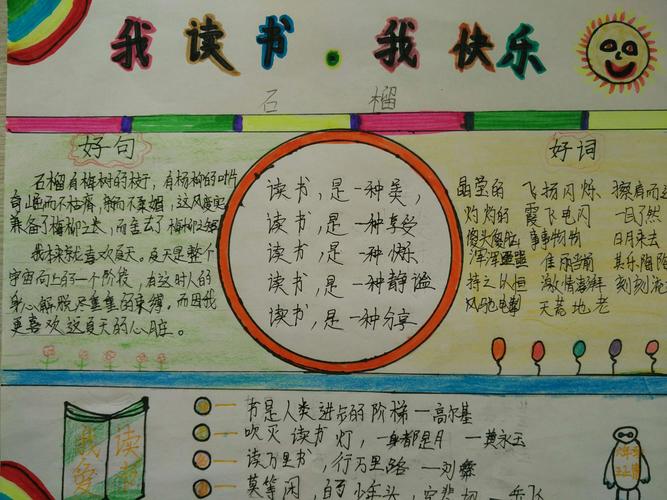 我读书·我快乐
石榴
好句
石榴有梅树的枝干，有杨柳的叶片
奇崛而不枯瘠，新而不柔媚，这风度实
兼备了梅柳之长，而舍去了梅柳之短。
我本来就喜欢夏天。夏天是整个
宇宙向上的一个阶段，在这时人的
身心解脱尽重重的束缚。而因我
更喜欢这夏天的心脏。
读书，是一种美，
读书，是一种享受
读书，是一种快乐
读书，是一种静谧
读书，是一种分享
好词
晶莹的 飞扬闪烁 擦肩而
灼灼的 霞飞电闪 一目了然
傻头傻脑 事事物物 日月来去
浑浑噩噩 佳丽当前 其乐陶陶
持之以恒 激情澎湃 刻刻流
风驰电掣 天荒地老
我爱
读书
书是人类进步的阶梯—高尔基
吹灭读书灯，一身都是月—黄永玉
读万里书，行万里路—刘彝
莫等闲，白了少年头，空悲切—岳飞